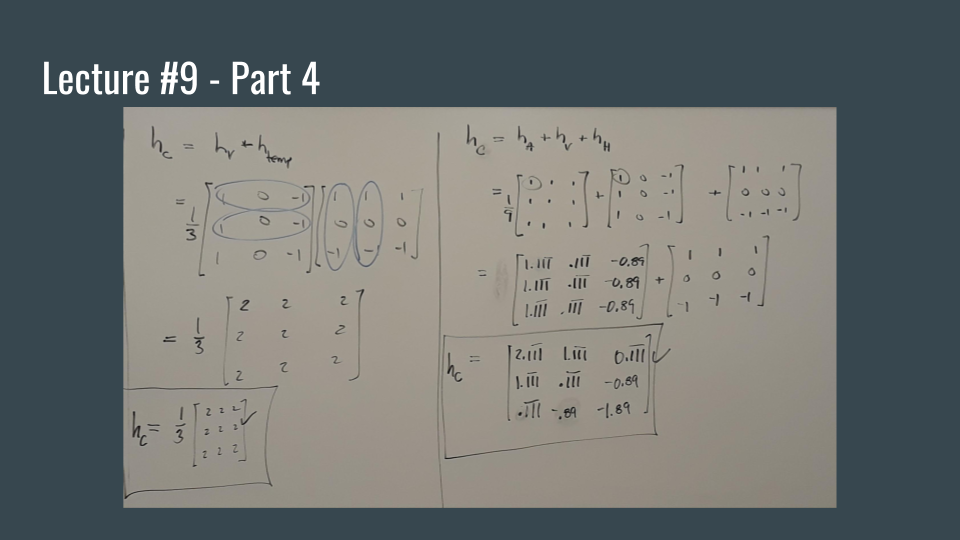 Lecture #9 - Part 4
h_C = h_V + h_temp
= 1/3 [1 0 -1] [1 1 1]
[1 0 -1] [0 0 0]
[1 0 -1] [-1 -1 -1]
= 1/3 [2 2 2]
[2 2 2]
[2 2 2]
h_C = 1/3 [2 2 2] ✓
[2 2 2]
[2 2 2]
h_C = h_A + h_V + h_H
= 1/9 [1 1 1] + [1 0 -1] + [1 1 1]
[1 1 1] [1 0 -1] [0 0 0]
[1 1 1] [1 0 -1] [-1 -1 -1]
= [1.111 .111 -0.89] + [1 1 1]
[1.111 .111 -0.89] [0 0 0]
[1.111 .111 -0.89] [-1 -1 -1]
h_C = [2.111 1.111 0.111] ✓
[1.111 .111 -0.89]
[.111 -.89 -1.89]